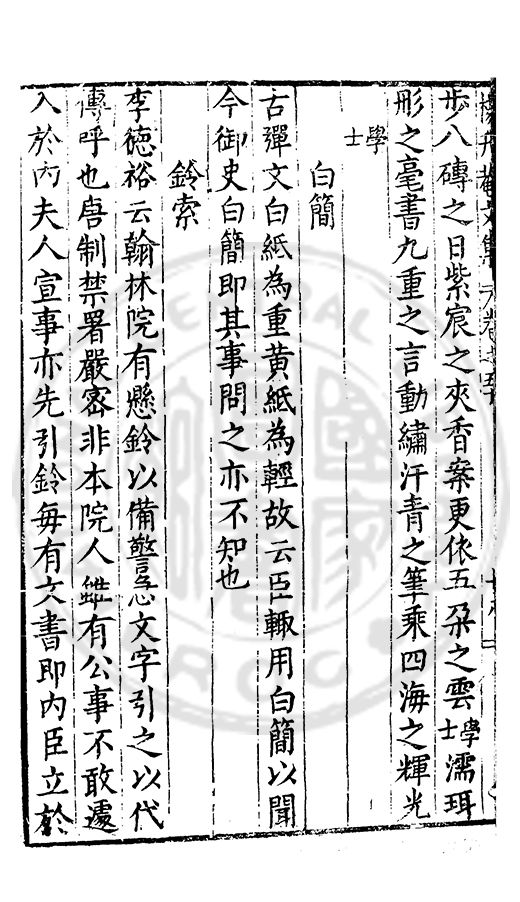 步八磚之日紫宸之夾香案更依五朶之雲學士濡珥
彤之毫書九重之言動繡汗青之筆乘四海之輝光
學士
白簡
古彈文白紙為重黄紙為輕故云臣輙用白簡以聞
今御史白簡即其事問之亦不知也
鈴索
李德裕云翰林院有懸鈴以備警急文字引之以代
傳呼也唐制禁署嚴宻非本院人雖有公事不敢遽
入於內夫人宣事亦先引鈴每有文書即內臣立於